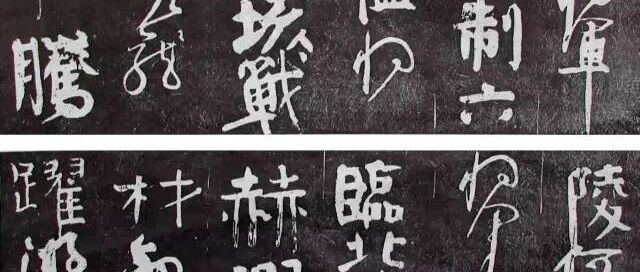 軍
制六
將
垓戰
龍
騰
陵何
將軍
臨北
赫
材
躍游